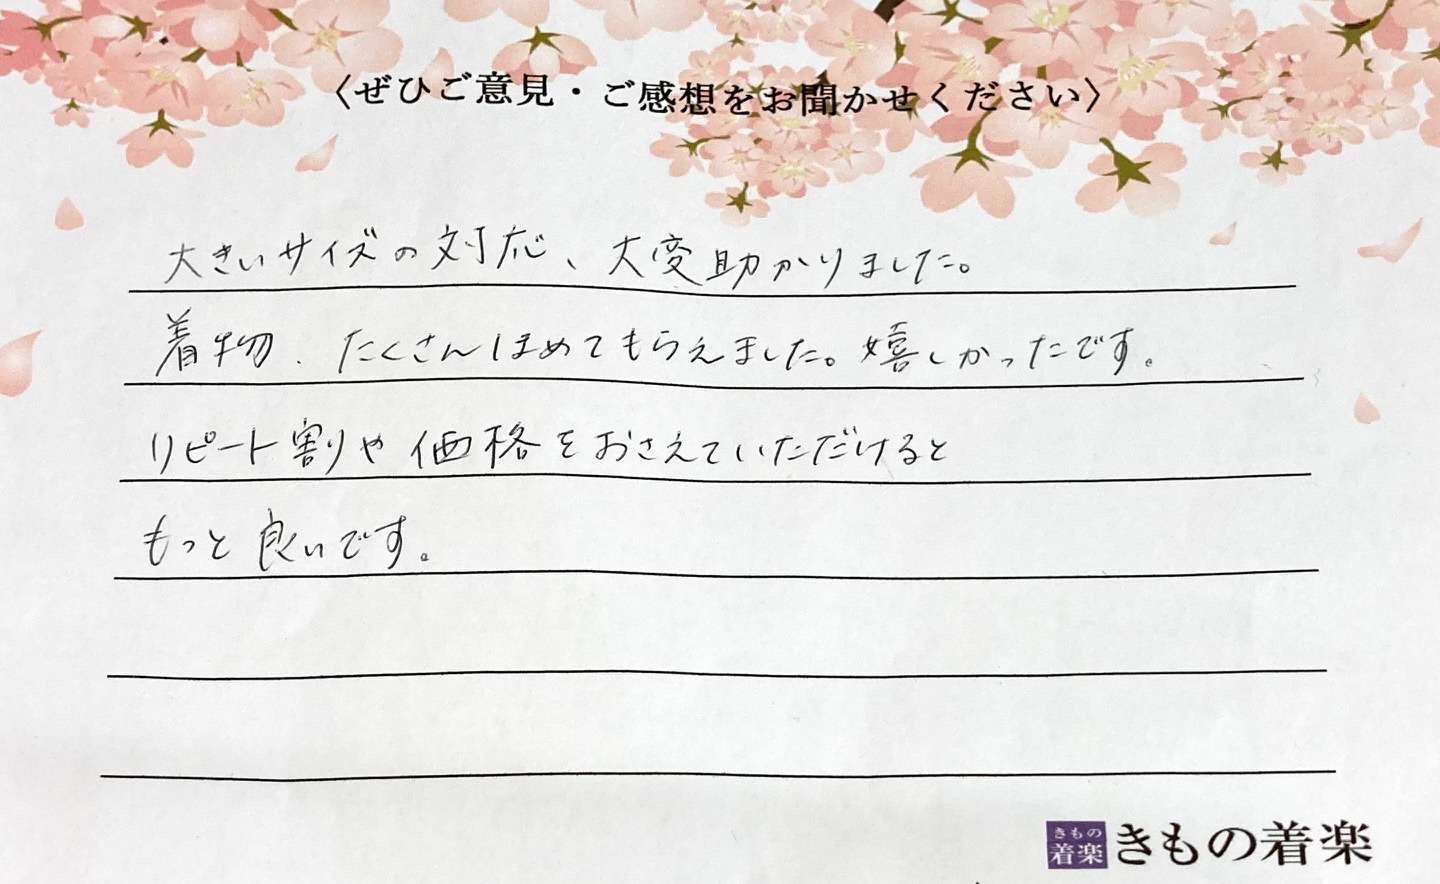 〈ぜひご意見・ご感想をお聞かせください〉
大きいサイズの対応、大変助かりました。
着物、たくさんほめてもらえました。嬉しかったです。
リピート割や価格をおさえていただけると
もっと良いです。
きもの
着楽
きもの着楽